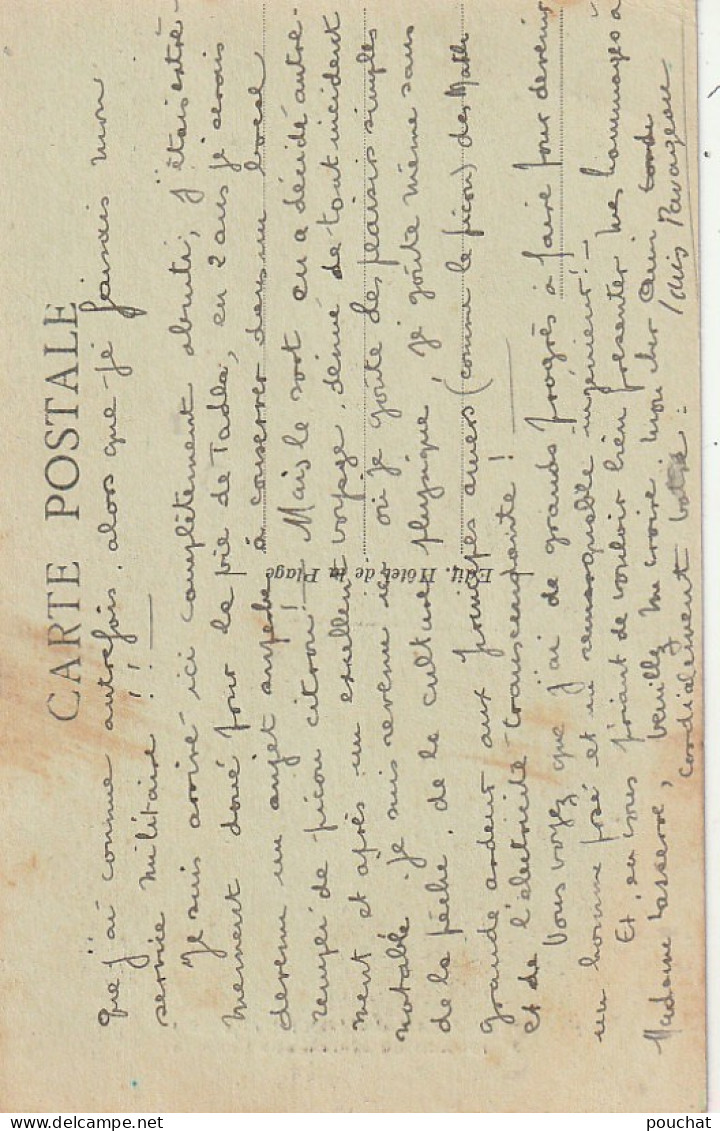 CARTE POSTALE
que j'ai connue autrefois. alors que je faisais mon
service militaire !! —
Je suis arrivé ici complètement abruti, j'étais extrê-
mement doué pour la vie de Tadla, en 2 ans je serais
devenu un sujet superbe à conserver dans un bocal
rempli de picon citron ! Mais le sort en a décidé autre-
ment et après un excellent voyage, dénué de tout incident
notable je suis revenu ici où je goûte des plaisirs simples
de la pêche, de la culture physique, je goûte même sans
grande ardeur aux principes amers (comme le picon) des Math
et de l'électricité transcendante !
Vous voyez que j'ai de grands progrès à faire pour devenir
un homme posé et un remarquable ingénieur ! —
Et, en vous priant de vouloir bien présenter mes hommages à
Madame Lasserre, veuillez me croire mon cher
cordialement votre.
Edit. Hôtel de la Plage
pouchat